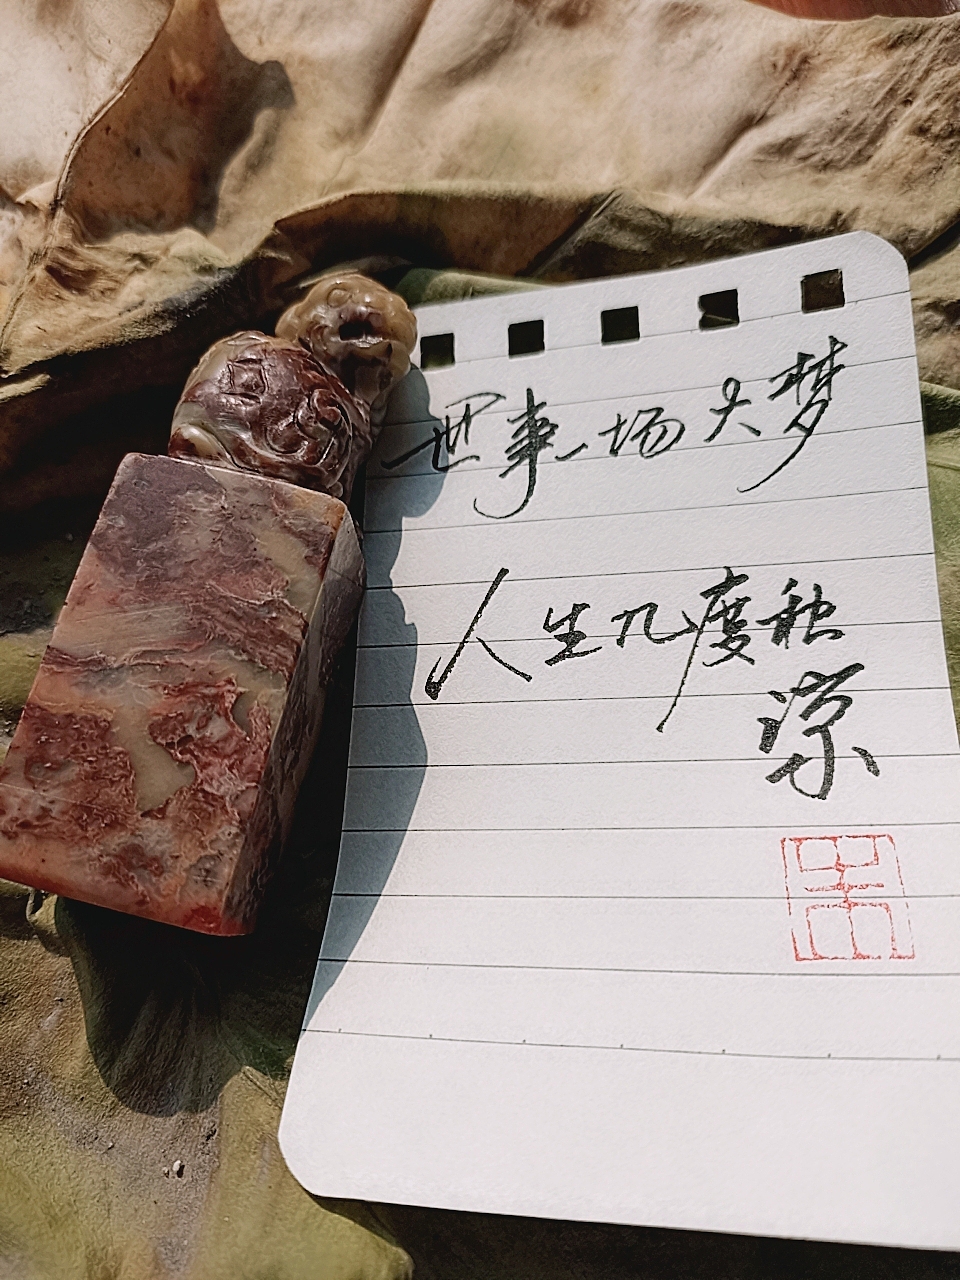 世事一场大梦
人生几度秋
凉